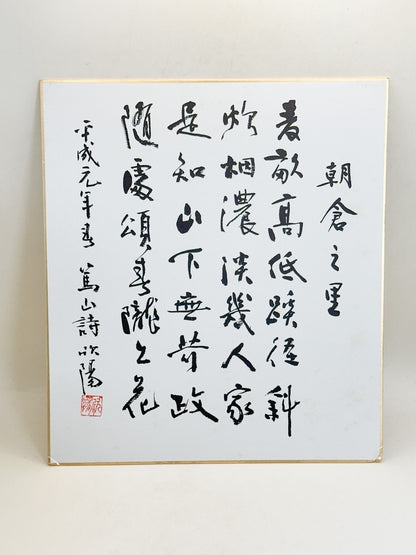 朝倉之里
麦畝高低蹊径斜
炊烟濃淡幾人家
是知山下無苛政
随處頌春隴上花
平成元年春 篤山詩 吹陽